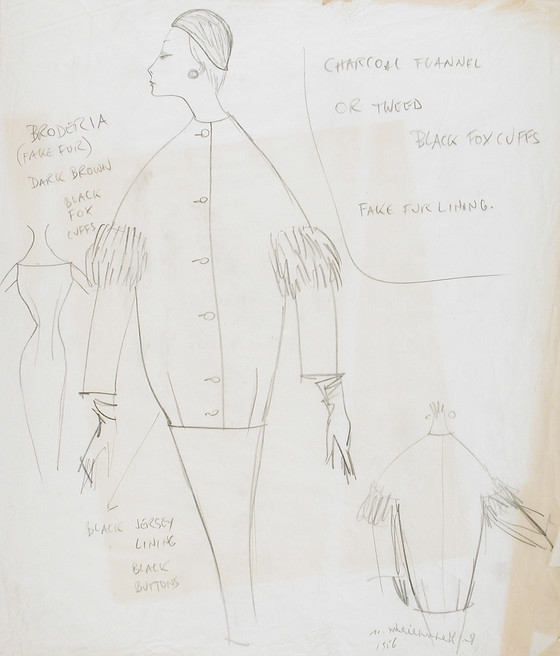 CHARCOAL FLANNEL
OR TWEED
BLACK FOX CUFFS
FAKE FUR LINING.
BRODERIA
(FAKE FUR)
DARK BROWN
BLACK
FOX
CUFFS
BLACK JERSEY
LINING
BLACK
BUTTONS
1956